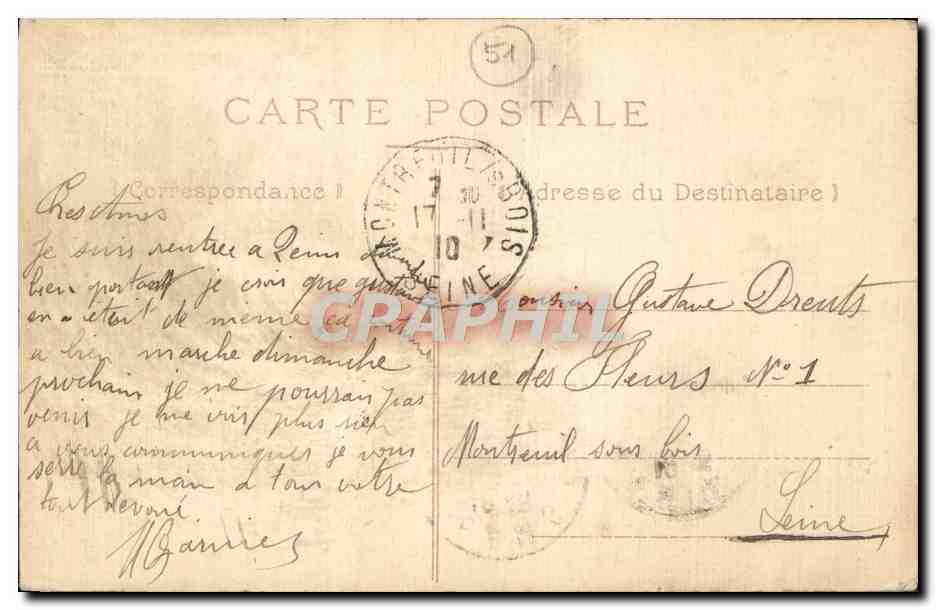 51
CARTE POSTALE
Correspondance
Adresse du Destinataire
MONTREUIL S BOIS
7 30
17 - 11
10
SEINE
Chers Amis
Je suis rentrée a
bien portant je crois que gustave
en etait de meme ca
a bien marche dimanche
prochain je ne pourrai pas
venir je ne vois plus rien
a vous communiquer je vous
serre la main a tous votre
tout devoué
Monsieur Gustave Drents
rue des Fleurs No 1
Montreuil sous bois
Seine
CPAPHIL